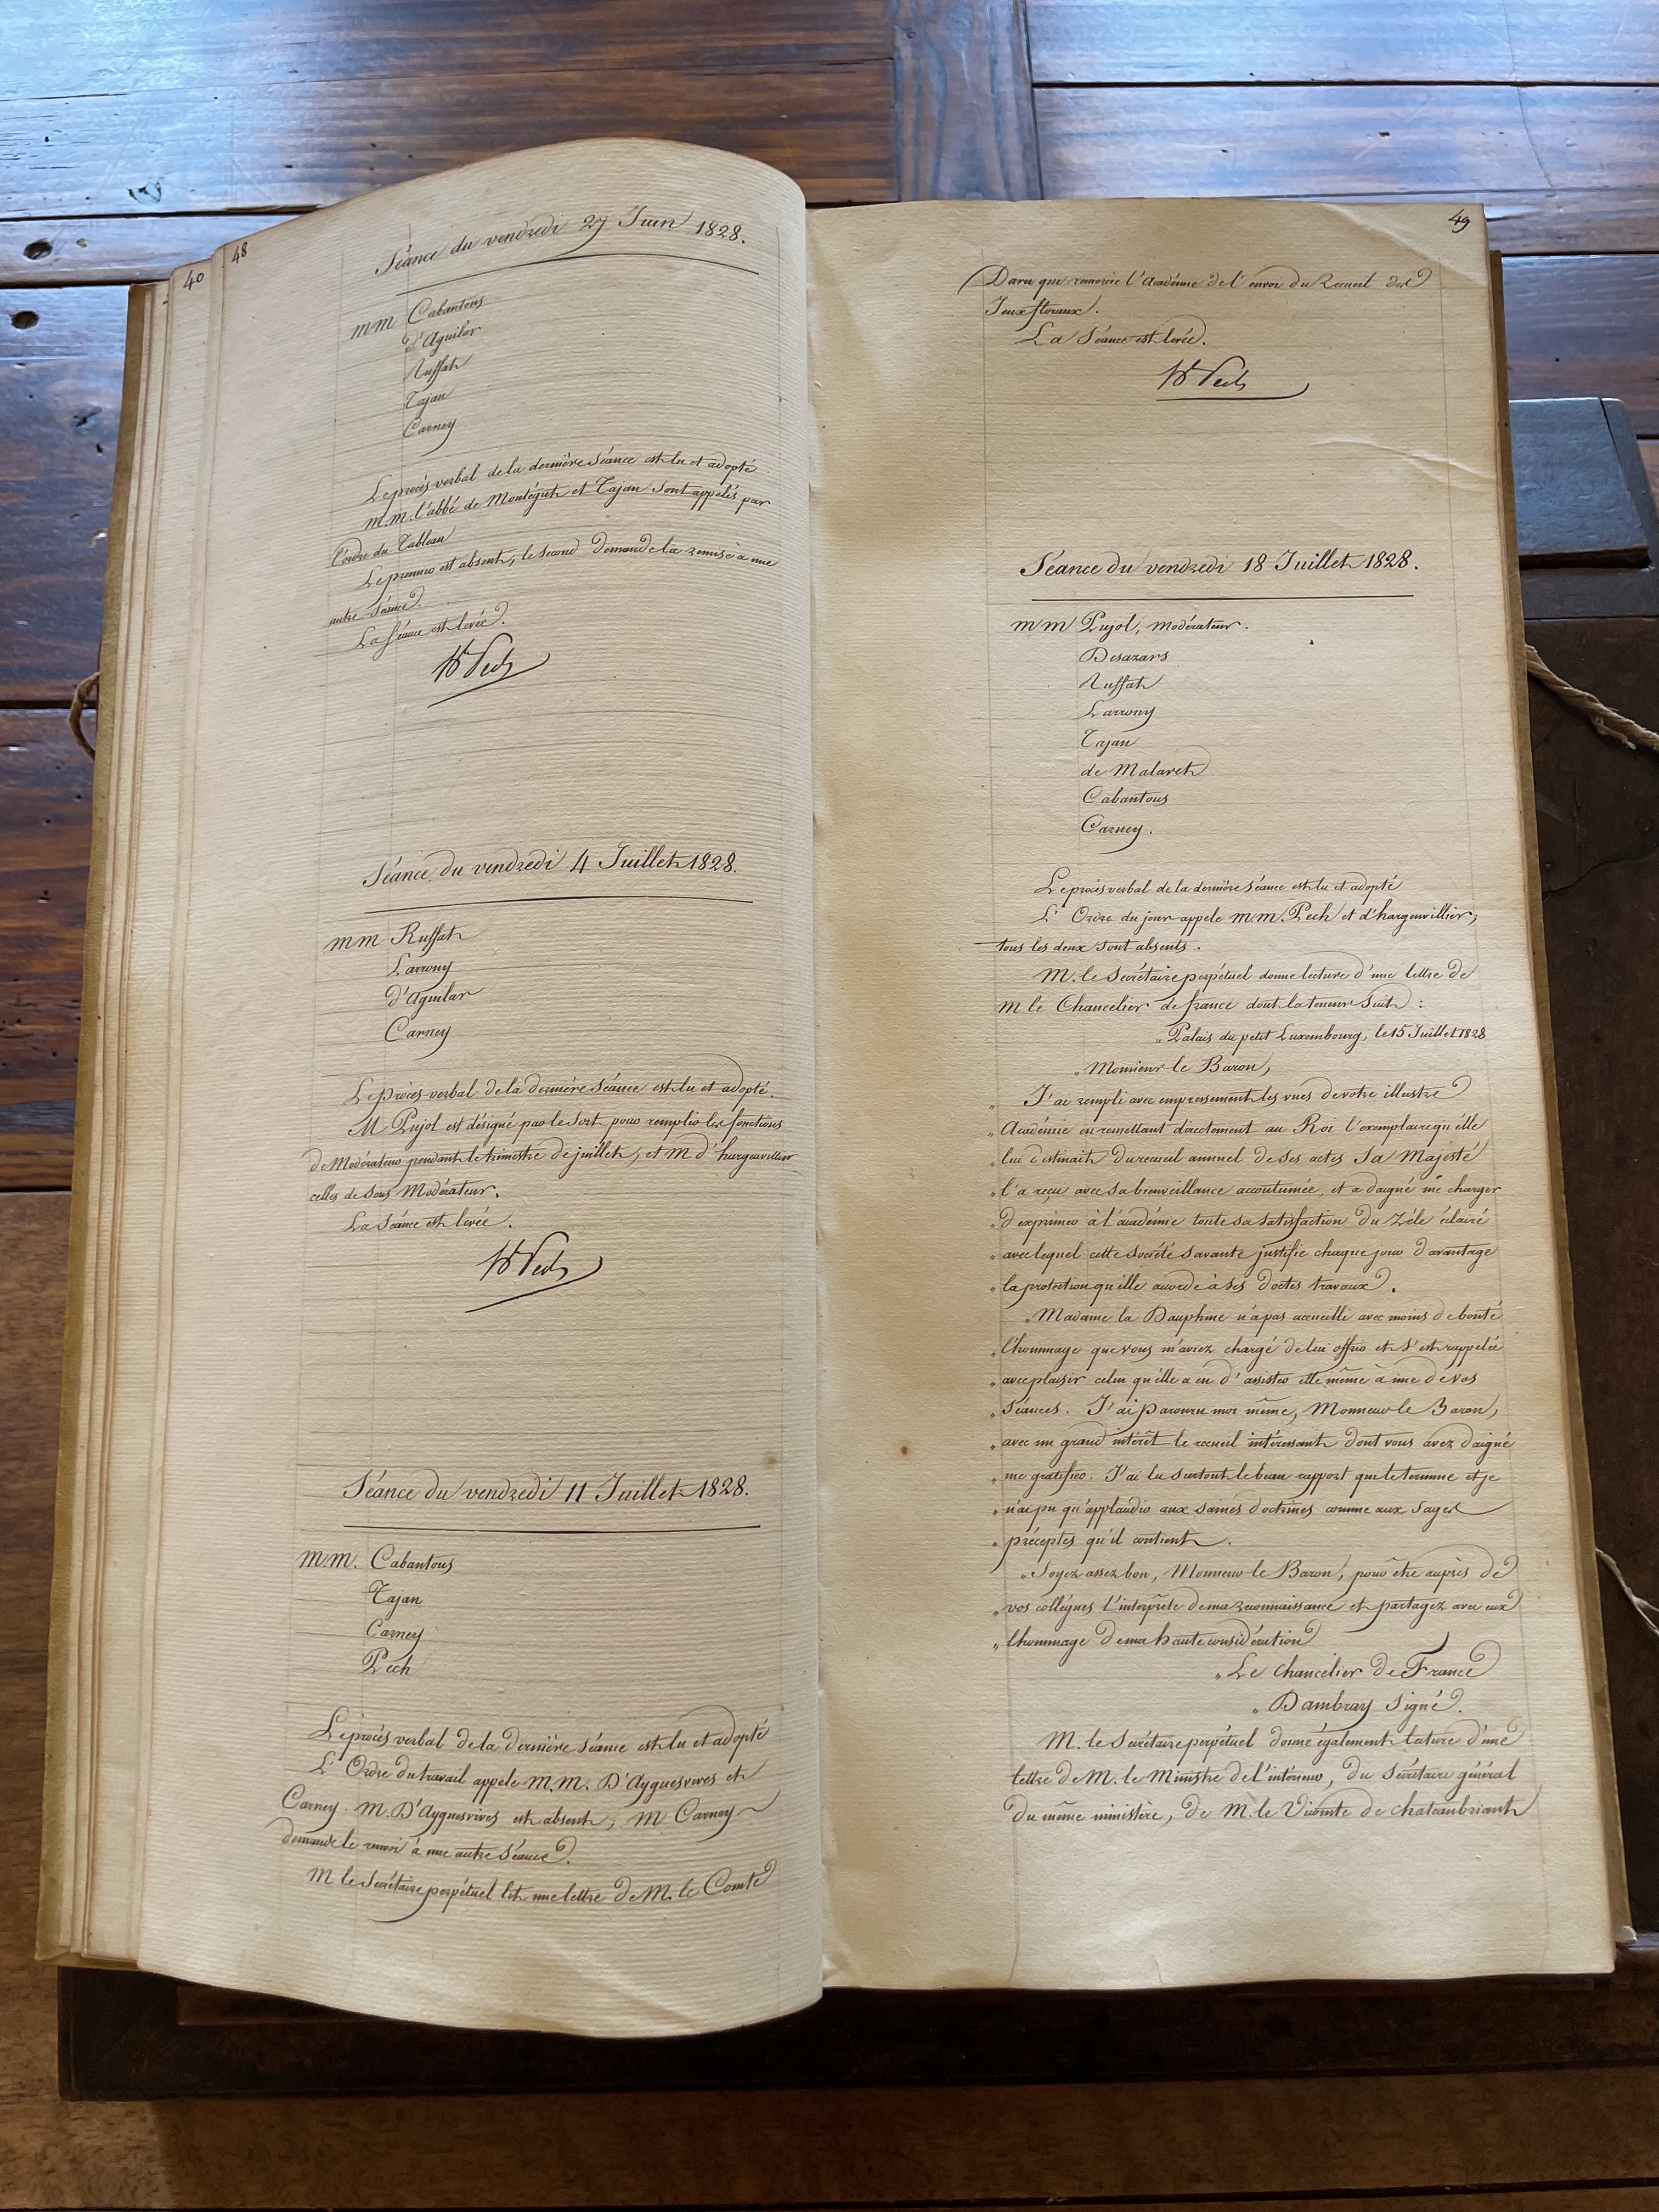 40
48
Séance du vendredi 27 Juin 1828.
MM Cabantous
d'Aguilar
Ruffat
Tajan
Carney
Le procès verbal de la dernière Séance est lu et adopté
M.M. l'abbé de Montégut et Tajan sont appelés par
l'ordre du Tableau
Le premier est absent, le second demande la remise à une
autre Séance.
La Séance est levée.
Pech
Séance du vendredi 4 Juillet 1828.
MM Ruffat
Larrouy
d'Aguilar
Carney
Le procès-verbal de la dernière Séance est lu et adopté.
M Pujol est désigné par le Sort pour remplir les fonctions
de Modérateur pendant le trimestre de juillet, et M d'hargenvillier
celles de Sous Modérateur.
La Séance est levée.
Pech
Séance du vendredi 11 Juillet 1828.
MM. Cabantous
Tajan
Carney
Pech
Le procès verbal de la dernière séance est lu et adopté
L'Ordre du travail appele M.M. D'Ayguesvives et
Carney. M. D'Ayguesvives est absent, M Carney
demande le renvoi à une autre Séance.
M le Secrétaire perpétuel lit une lettre de M. le Comte
49
Daru qui remercie l'Académie de l'envoi du Recueil des
Jeux floraux.
La Séance est levée.
Pech
Séance du vendredi 18 Juillet 1828.
MM Pujol, modérateur.
Desazars
Ruffat
Larrouy
Tajan
de Malaret
Cabantous
Carney.
Le procès verbal de la dernière séance est lu et adopté
L'Ordre du jour appele M.M. Pech et d'hargenvillier;
tous les deux sont absents.
M. le Secrétaire perpétuel donne lecture d'une lettre de
M le Chancelier de france dont la teneur suit :
„ Palais du petit Luxembourg, le 15 Juillet 1828
„ Monsieur le Baron,
„ J'ai rempli avec empressement les vues de votre illustre
„ Académie en remettant directement au Roi l'exemplaire qu'elle
„ lui destinait du recueil annuel de ses actes Sa Majesté
„ l'a reçu avec sa bienveillance accoutumée, et a daigné me charger
„ d'exprimer à l'académie toute sa satisfaction du zèle éclairé
„ avec lequel cette société savante justifie chaque jour davantage
„ la protection qu'elle accorde à ses doctes travaux.
„ Madame la Dauphine n'a pas accueilli avec moins de bonté
„ l'hommage que vous m'aviez chargé de lui offrir et s'est rappelée
„ avec plaisir celui qu'elle a eu d'assister elle même à une de vos
„ Séances. J'ai parcouru moi même, Monsieur le Baron,
„ avec un grand intérêt le recueil intéressant dont vous avez daigné
„ me gratifier. J'ai lu surtout le beau rapport qui le termine et je
„ n'ai pu qu'applaudir aux saines doctrines comme aux Sages
„ préceptes qu'il contient.
„ Soyez assez bon, Monsieur le Baron, pour être auprès de
„ vos collègues l'interprète de ma reconnaissance et partagez avec eux
„ l'hommage de ma haute considération
„ Le chancelier de France
„ Dambray Signé.
M. le Secrétaire perpétuel donne également lecture d'une
lettre de M. le Ministre de l'intérieur, du Secrétaire général
du même ministère, de M. le Vicomte de chateaubriant